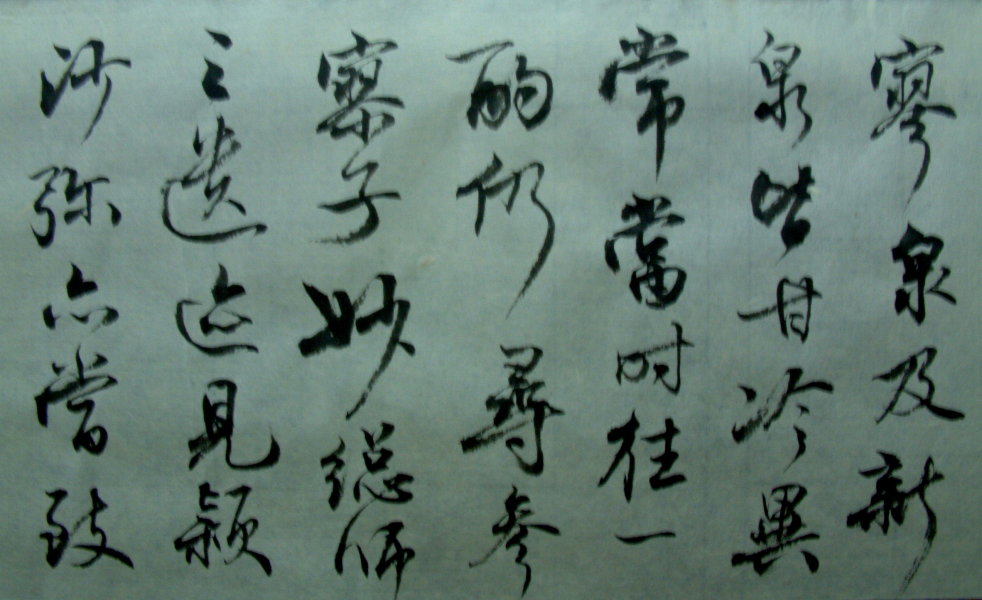 寥泉及新
泉皆甘冷異
常當时往一
酌仍尋參
寥子妙總师
之遺迹見颖
沙弥亦當致